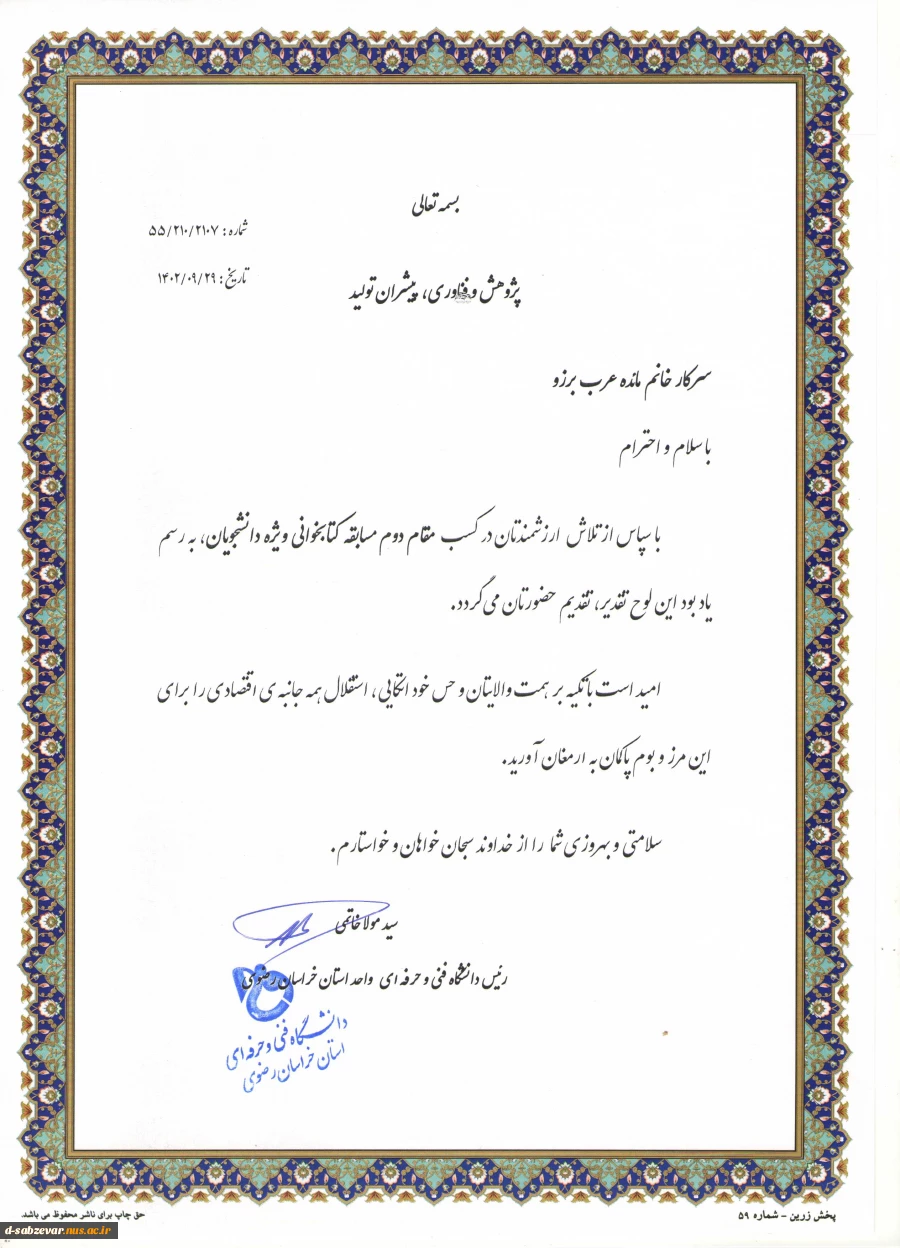 بسمه تعالی
شماره: ۵۵/۲۱۰/۲۱۰۷
تاریخ: ۱۴۰۲/۰۹/۲۹
پژوهش و فناوری، پیشران تولید
سرکار خانم مائده عرب برزو
با سلام و احترام
با سپاس از تلاش ارزشمندتان در کسب مقام دوم مسابقه کتابخوانی ویژه دانشجویان، به رسم
یاد بود این لوح تقدیر، تقدیم حضورتان می‌گردد.
امید است با تکیه بر همت والایتان و حس خود اتکایی، استقلال همه جانبه‌ی اقتصادی را برای
این مرز و بوم پاکمان به ارمغان آورید.
سلامتی و بهروزی شما را از خداوند سبحان خواهان و خواستارم.
سید مولا خاتمی
رئیس دانشگاه فنی و حرفه‌ای واحد استان خراسان رضوی
دانشگاه فنی و حرفه‌ای
استان خراسان رضوی
پخش زرین - شماره ۵۹
حق چاپ برای ناشر محفوظ می باشد.
d-sabzevar.nus.ac.ir